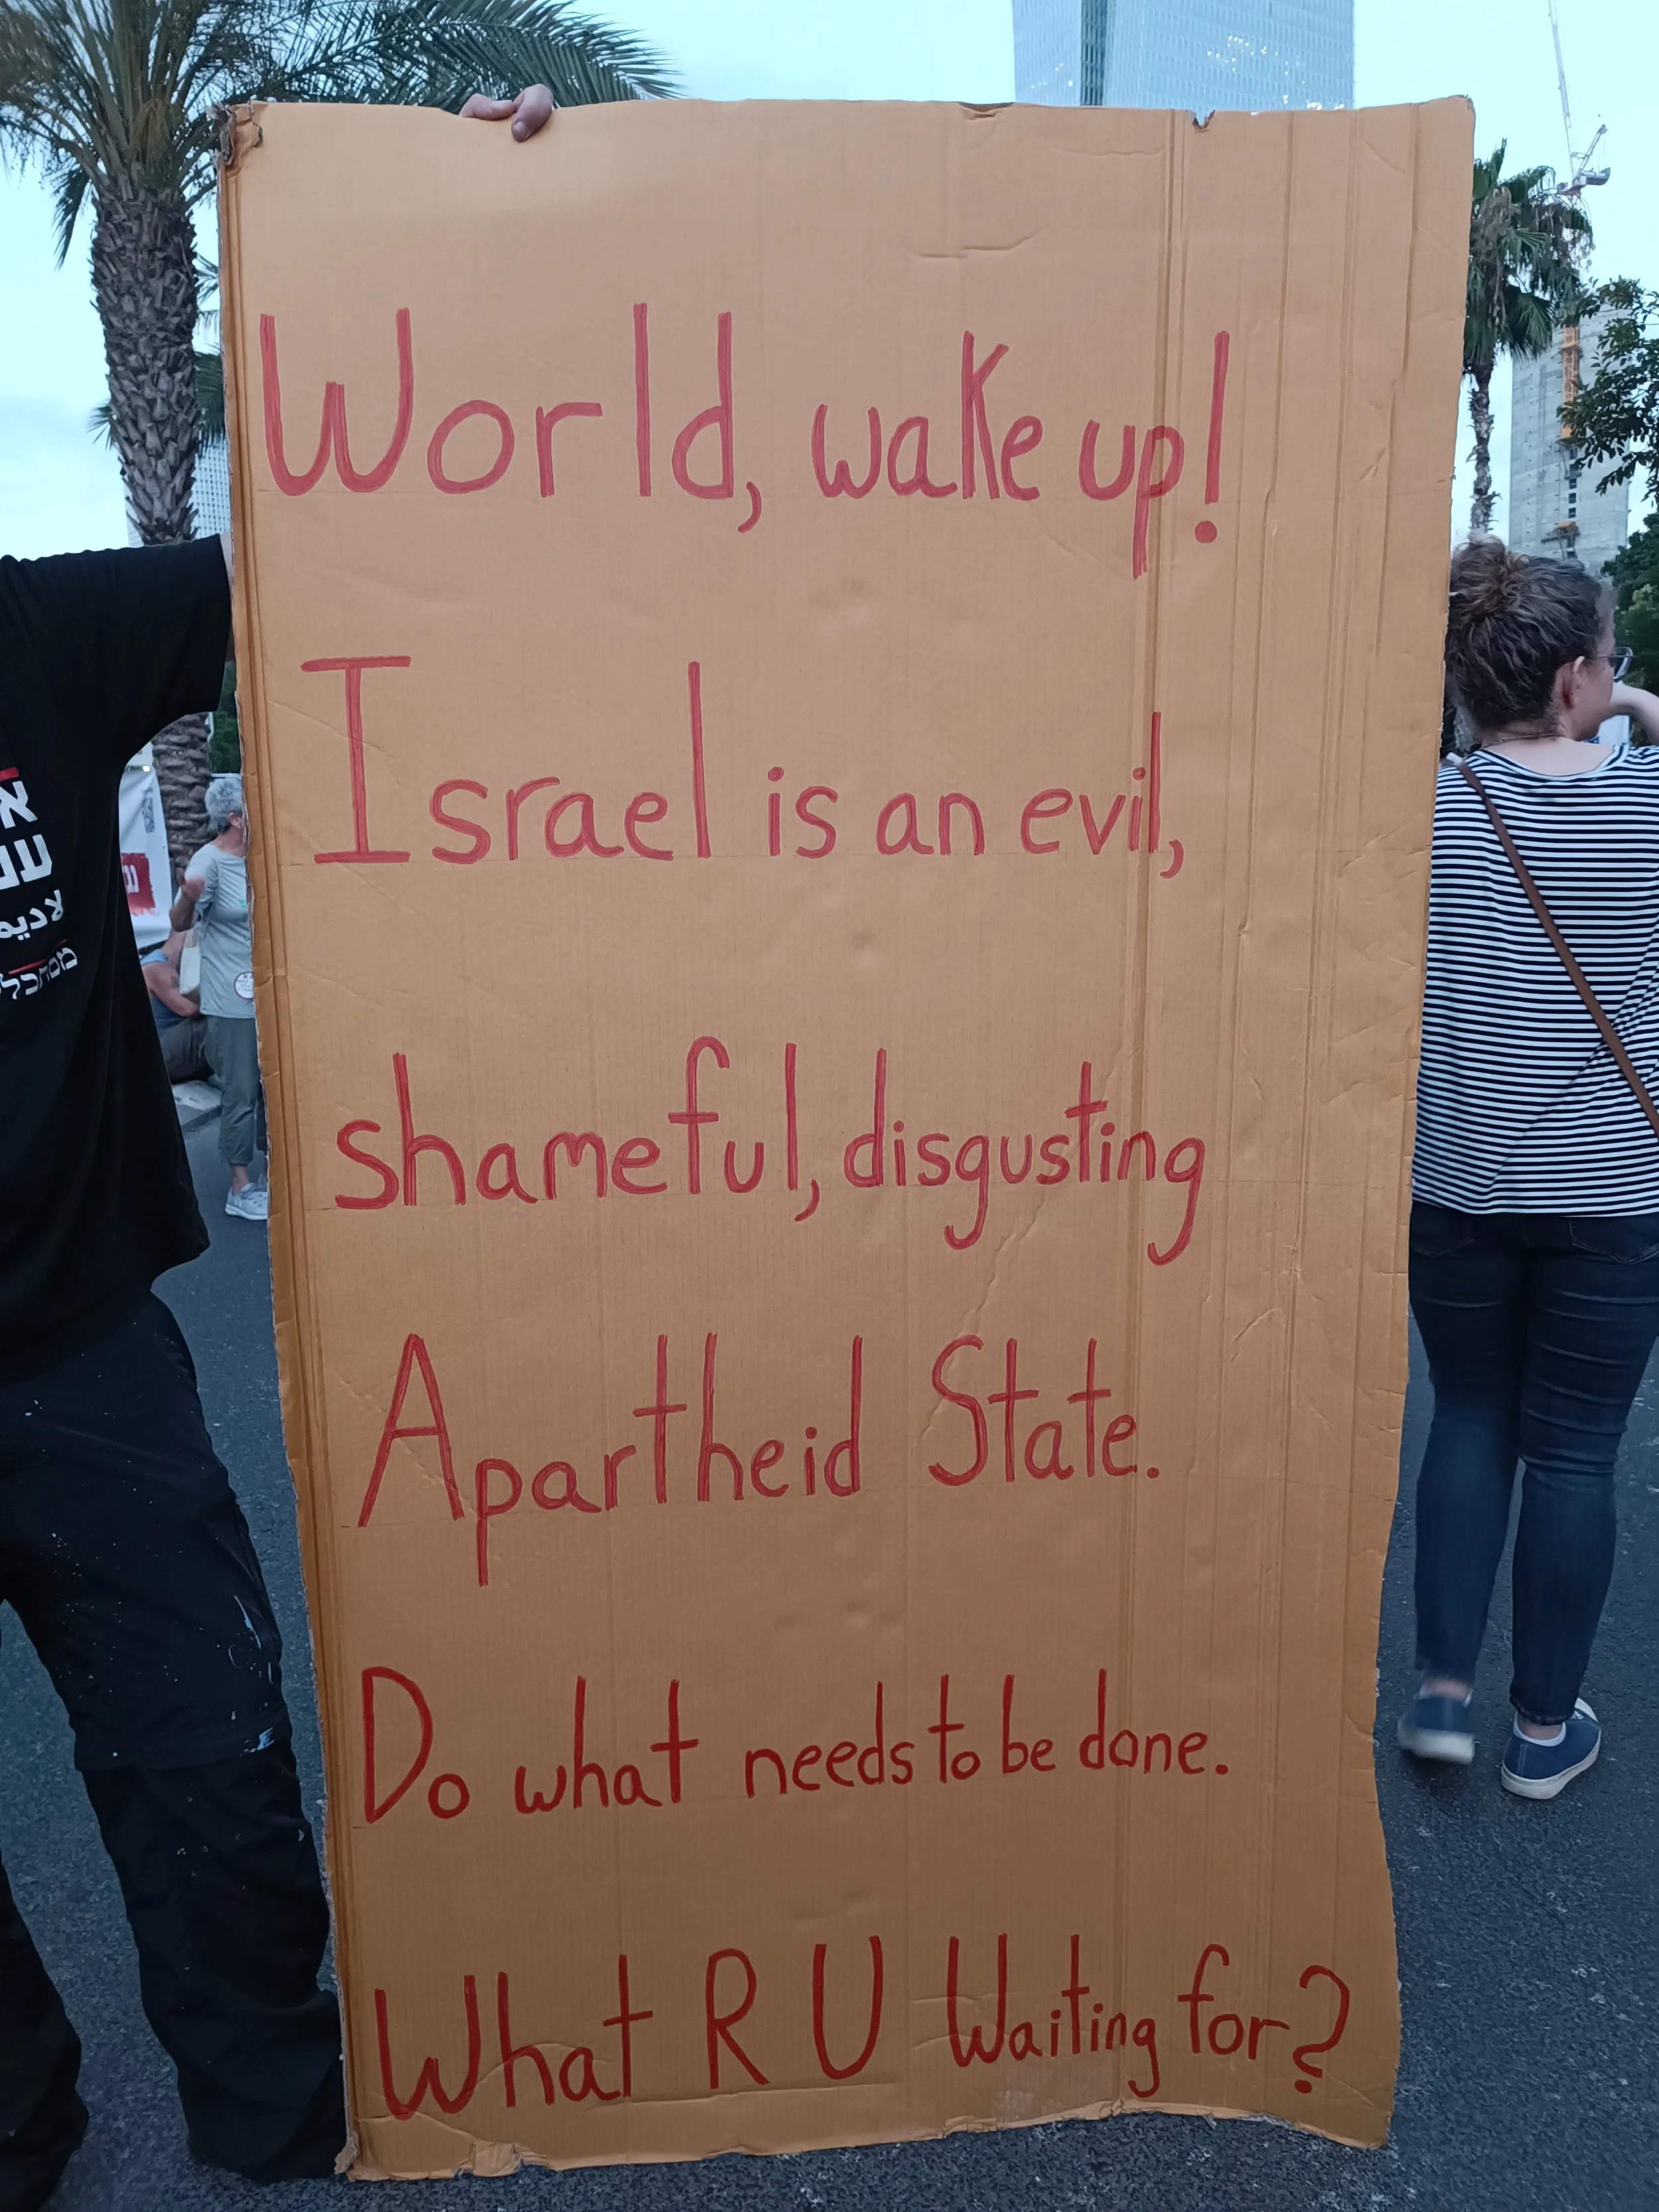 World, wake up!
Israel is an evil,
shameful, disgusting
Apartheid State.
Do what needs to be done.
What R U Waiting for?